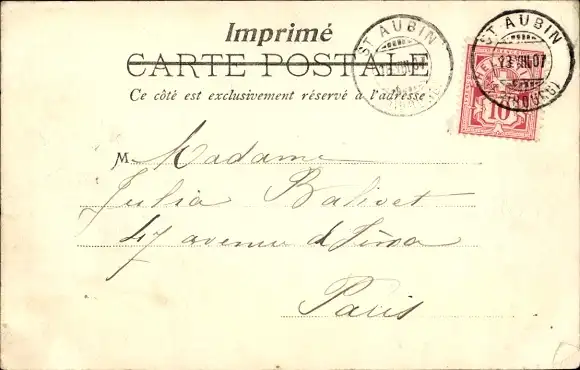 Imprimé
CARTE POSTALE
Ce côté est exclusivement réservé à l'adresse
ST AUBIN
ST AUBIN
23 VIII 07
HELVETIA
10
M Madame
Julia Balivet
47 avenue d'Iéna
Paris